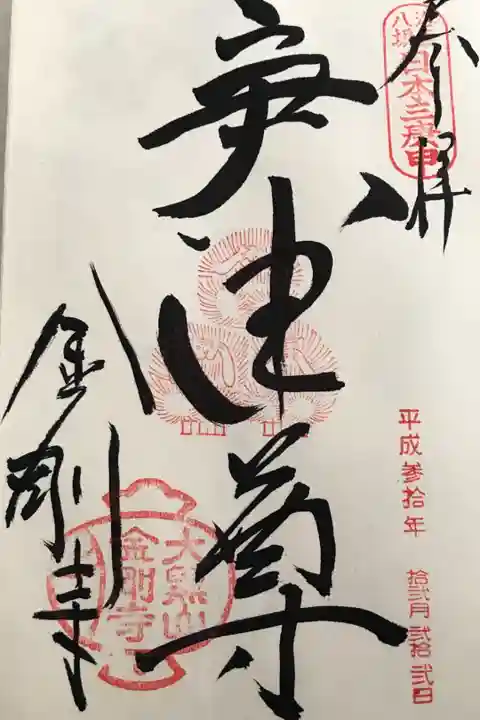 奉拝
八坂 日本三庚申
平成参拾年 拾弐月弐拾弐日
庚申尊
金剛寺
大黒山
金剛寺